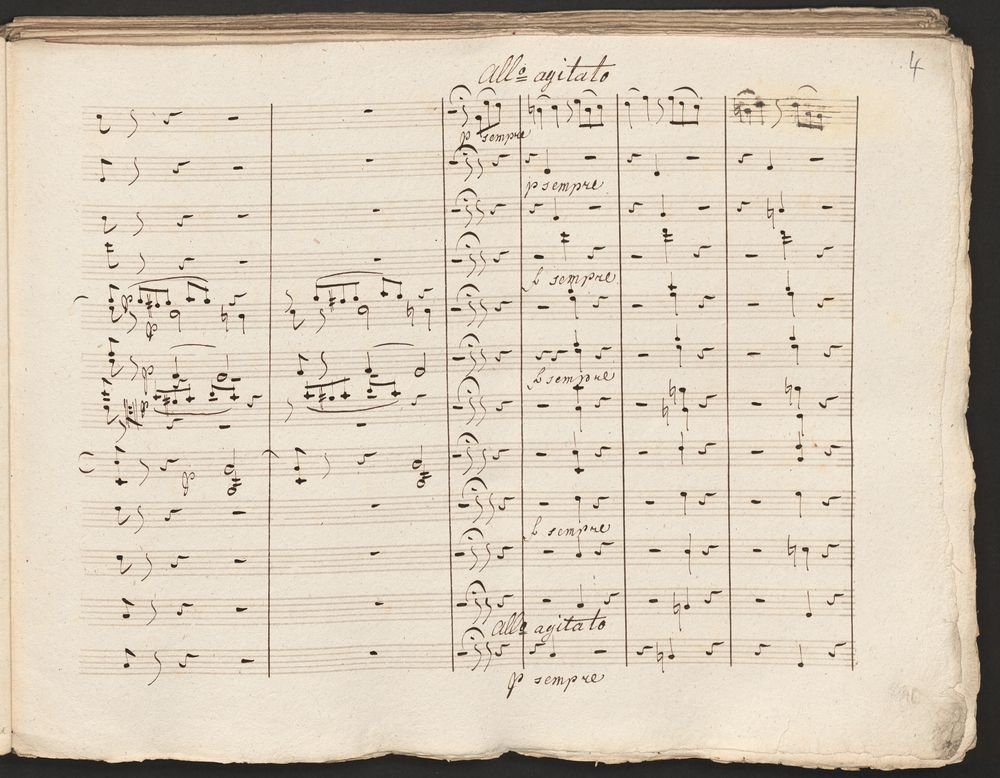 4
All.º agitato
p sempre
p sempre
p sempre
p sempre
p sempre
All.º agitato
p sempre